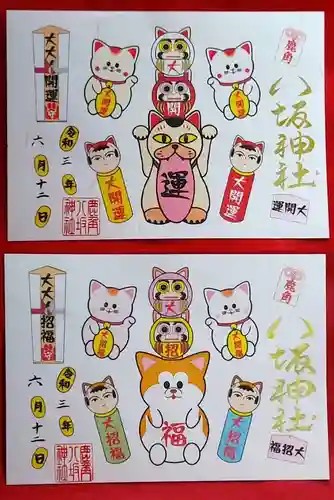 鹿角
八坂神社
大開運
大
開
運
大開運
大開運
大開運
大開運
大大開運
令和三年
六月十二日
鹿角八坂神社
鹿角
八坂神社
大招福
大
招
福
大招福
大招福
大招福
大招福
大大招福
令和三年
六月十二日
鹿角八坂神社